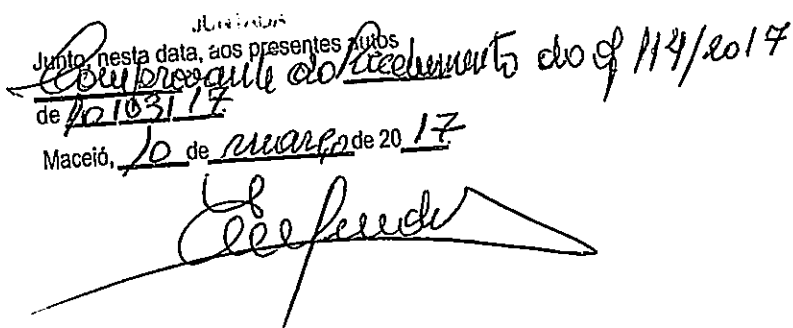 JUNTADA
Junto, nesta data, aos presentes autos
Comprovante do Recebimento do Of 114/2017
de 10/03/17
Maceió, 10 de março de 2017